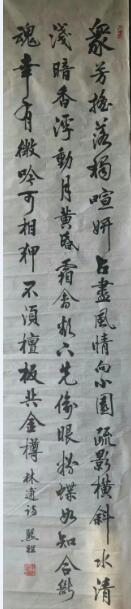 眾芳搖落獨暄妍占盡風情向小園疏影橫斜水清
淺暗香浮動月黃昏霜禽欲下先偷眼粉蝶如知合斷
魂幸有微吟可相狎不須檀板共金樽林逋詩